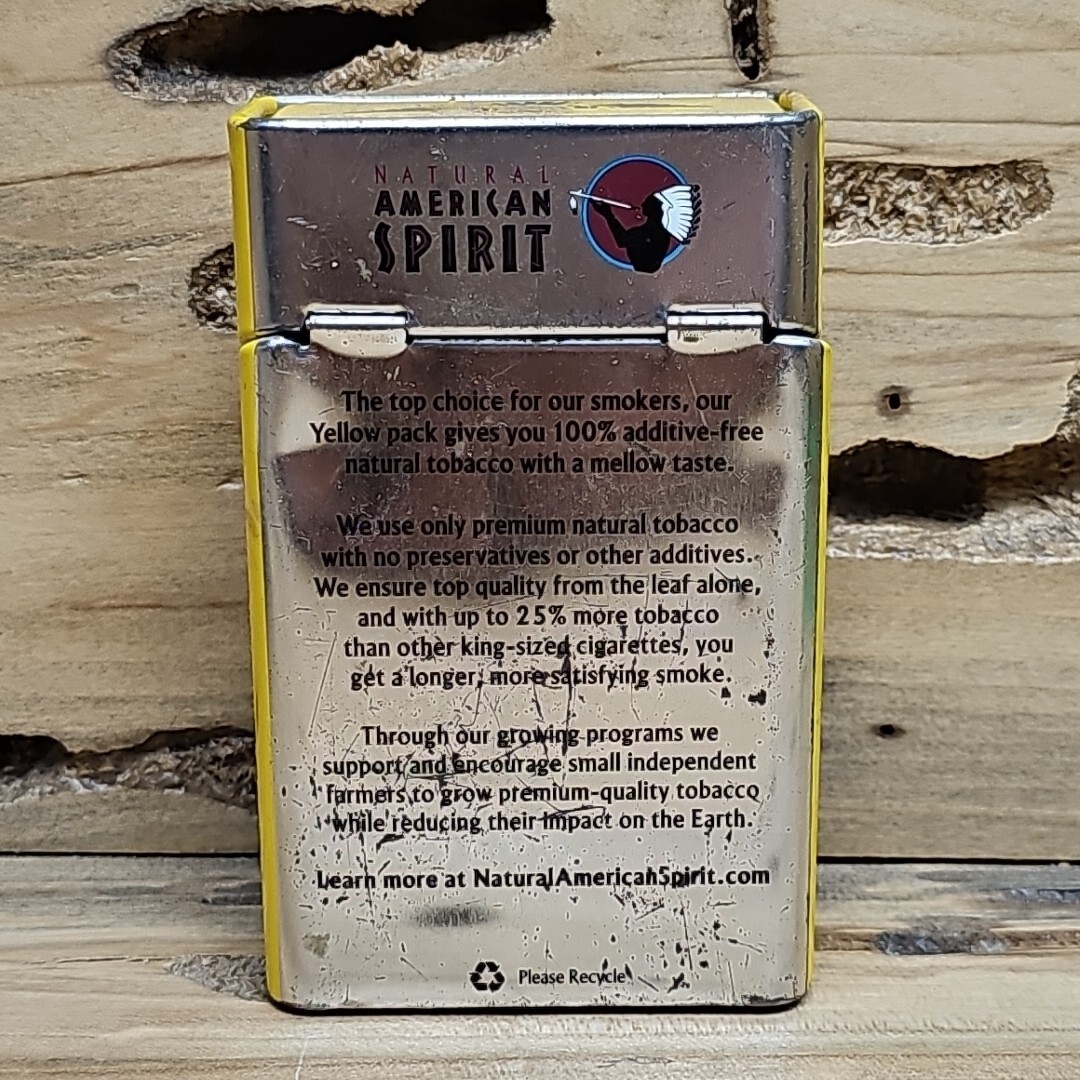 NATURAL
AMERICAN
SPIRIT
The top choice for our smokers, our
Yellow pack gives you 100% additive-free
natural tobacco with a mellow taste.
We use only premium natural tobacco
with no preservatives or other additives.
We ensure top quality from the leaf alone,
and with up to 25% more tobacco
than other king-sized cigarettes, you
get a longer, more satisfying smoke.
Through our growing programs we
support and encourage small independent
farmers to grow premium-quality tobacco
while reducing their impact on the Earth.
Learn more at NaturalAmericanSpirit.com
Please Recycle